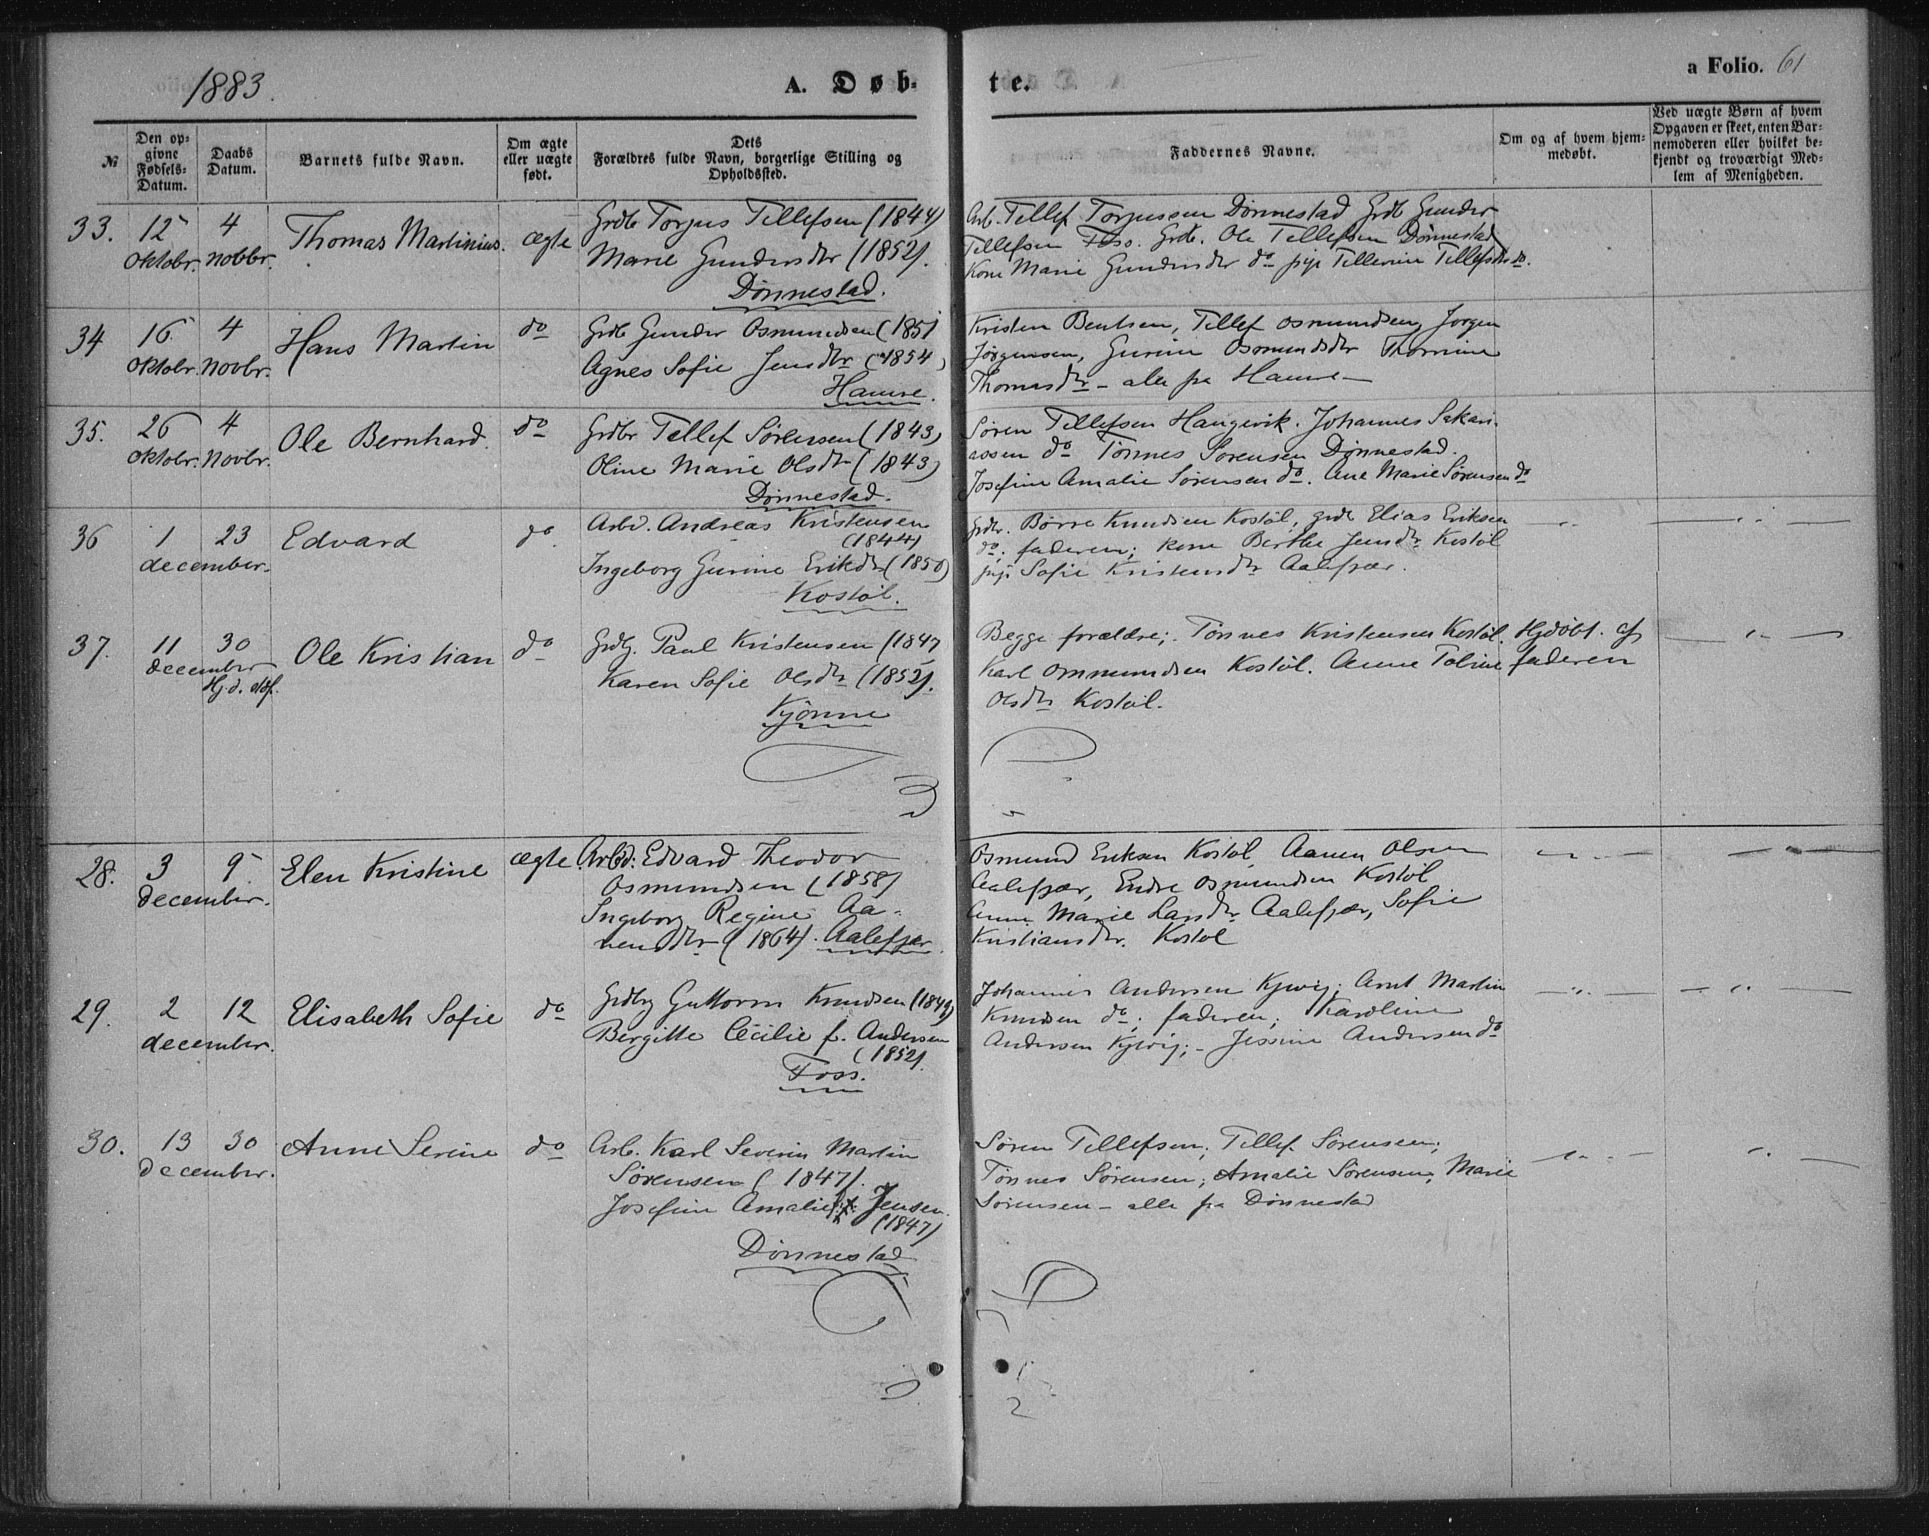 1883.
A. Døb-
te.
a Folio. 61
№
Den op-
givne
Fødsels-
Datum.
Daabs
Datum.
Barnets fulde Navn.
Om ægte
eller uægte
født.
Dets
Forældres fulde Navn, borgerlige Stilling og
Opholdssted.
Faddernes Navne.
Om og af hvem hjem-
medøbt.
Ved uægte Børn af hvem
Opgaven er skeet, enten Bar-
nemoderen eller hvilket be-
kjendt og troværdigt Med-
lem af Menigheden.
33.
12
oktobr.
4
nobbr.
Thomas Martinius.
ægte
Grdb Torjus Tellefsen (1844)
Marie Gundersdtr (1852).
Dönnestad.
Arb. Tellef Torjussen Dönnestad Grdb Gunder
Tellefsen Foss. Grdb. Ole Tellefsen Dönnestad
Kone Marie Gundersdtr do pige Tellevine Tellefsdtr do.
34
16
oktobr.
4
novbr.
Hans Martin
do
Grdb Gunder Osmundsen (1851
Agnes Sofie Jensdtr (1854)
Hamre.
Kristen Bentsen, Tellef Osmundsen, Jorgen
Jörgensen, Gurine Osmundsdtr Thomine
Thomasdtr – alle fra Hamre –
35.
26
oktobr.
4
Novbr.
Ole Bernhard.
do
Grdbr Tellef Sörensen (1843)
Oline Marie Olsdtr (1843)
Dönnestad.
Sören Tellefsen Haugevik. Johannes Sakari-
assen do Tönnes Sorensen Dönnestad.
Josefine Amalie Sörensen do. Ane Marie Sörensen do
36
1
23
december.
Edvard
do.
Arbd. Andreas Kristensen
(1844)
Ingeborg Gurine Eriksdtr (1850)
Kostöl.
Grdbr. Börre Knudsen Kostöl, grdb Elias Eriksen
do; faderen; kone Berthe Jensdtr Kostöl
pige Sofie Kristensdtr Aalefjær.
37.
11
30
december
Hj.d.
Ole Kristian
do
Grdbg. Paul Kristensen (1847
Karen Sofie Olsdtr (1852).
Kjönne
Begge forældre; Tönnes Kristensen Kostöl.
Karl Ommundsen Kostöl. Anne Toline
Olsdtr Kostöl.
Hjdöbt. af
faderen
28.
3
9
december.
Elen Kristine
ægte
Arbd: Edvard Theodor
Osmundsen (1858)
Ingeborg Regine Aa-
nensdtr (1864). Aalefjær.
Osmund Eriksen Kostöl, Aanen Olsen
Aalefjær, Endre Osmundsen Kostöl
Anne Marie Larsdtr Aalefjær, Sofie
Kristiansdtr. Kostöl
29.
2
12
december.
Elisabeth Sofie
do
Grdbg Guttorm Knudsen (1849)
Bergitte Cecilie f. Andersen
(1852).
Foss.
Johannes Andersen Kjevig; Arnt Martin
Knudsen do; faderen; Karoline
Andersen Kjevig; – Jessine Andersen do
30.
13
30
december.
Anne Serine
do
Arb. Karl Severin Martin
Sörensen (1847).
Josefine Amalie Jensen.
(1847)
Dönnestad
Sören Tellefsen; Tellef Sörensen;
Tönnes Sörensen; Amalie Sörensen, Marie
Sörensen – alle fra Dönnestad